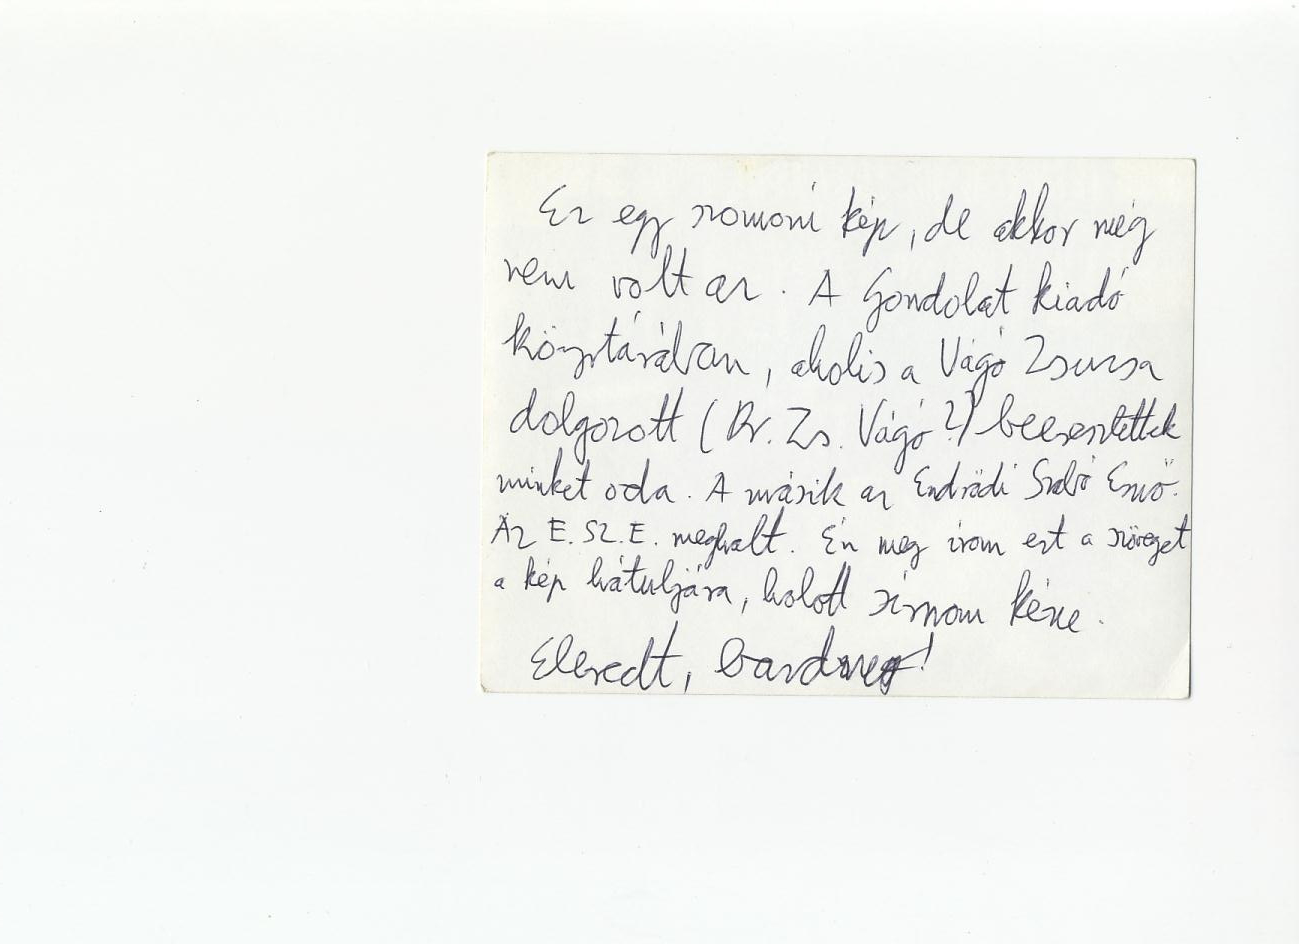 Ez egy szomorú kép, de akkor még
nem volt az. A Gondolat kiadó
könyvtárában, aholis a Vágó Zsuzsa
dolgozott (Dr. Zs. Vágó?) beesentettek
minket oda. A másik az Endrődi Szabó Ernő.
Az E. SZ. E. meghalt. Én meg írom ezt a szöveget
a kép hátuljára, holott sírnom kéne.
Eleredt, bazdmeg!